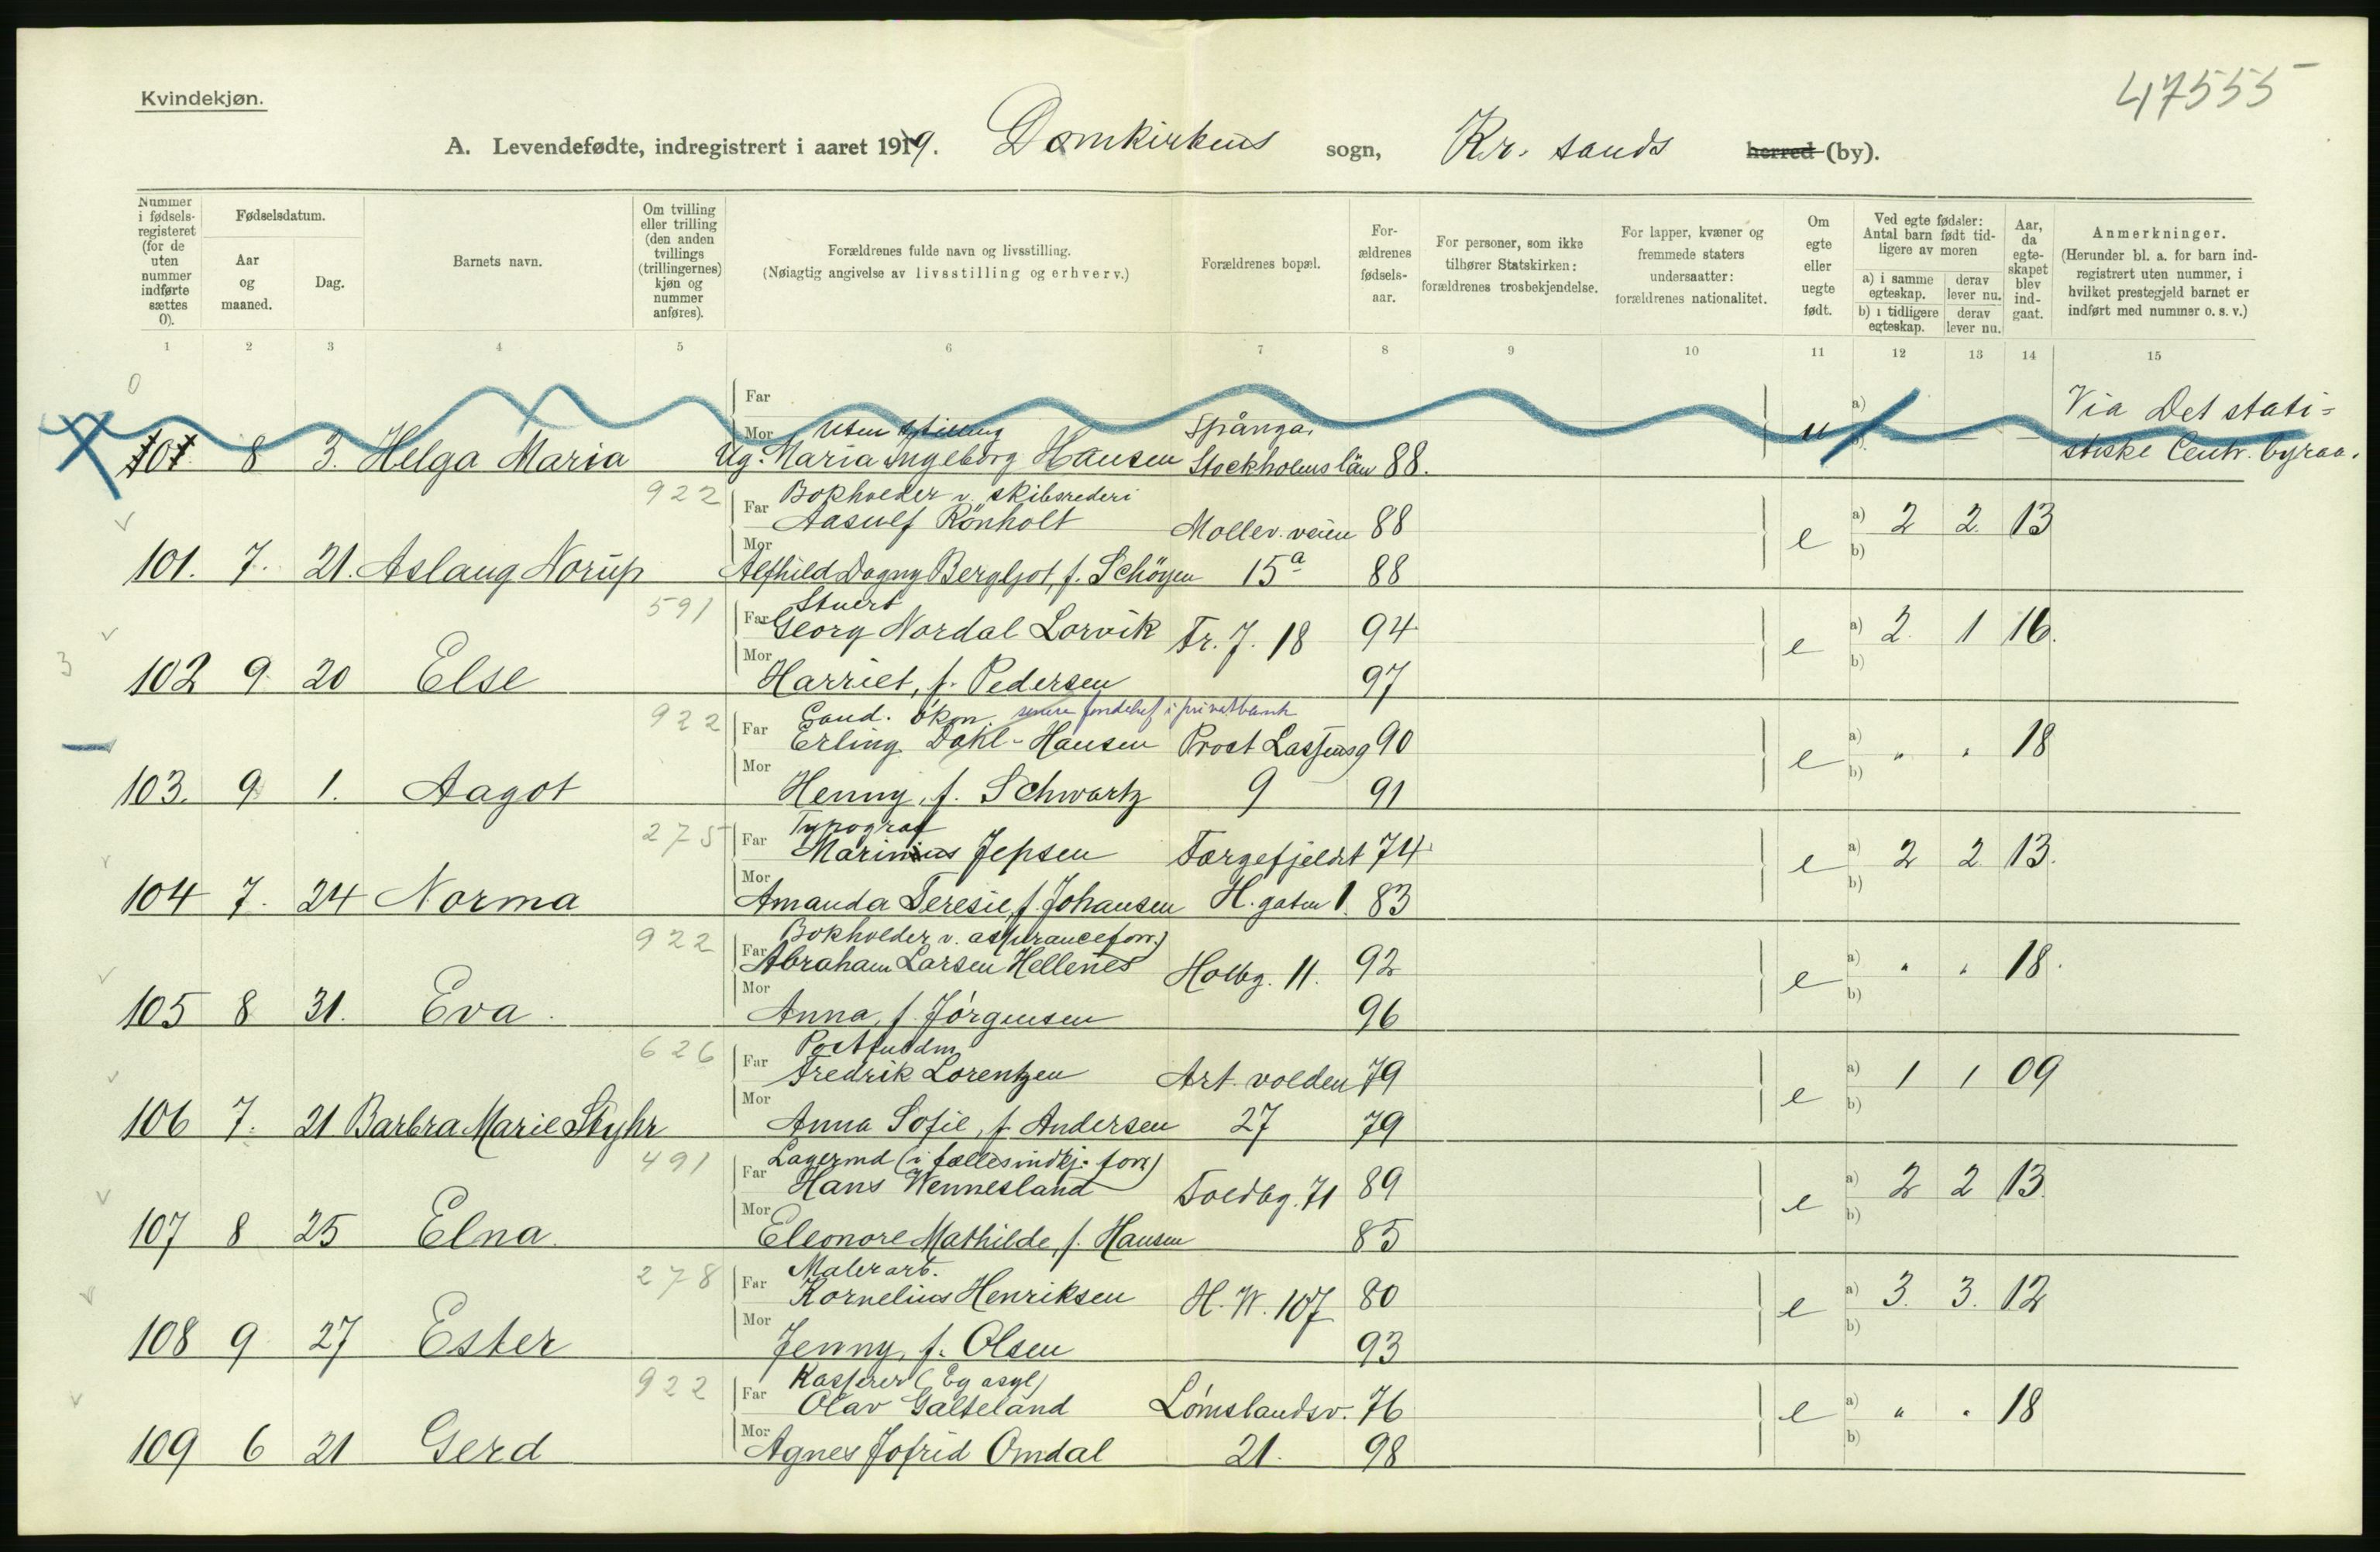 47555
Kvindekjøn.
A. Levendefødte, indregistrert i aaret 1919. Domkirkens sogn, Kr. sands herred (by).
Nummer i fødsels-registeret (for de uten nummer indførte sættes 0).
Fødselsdatum.
Aar og maaned.
Dag.
Barnets navn.
Om tvilling eller trilling (den anden tvillings (trillingernes) kjøn og nummer anføres).
Forældrenes fulde navn og livsstilling.
(Nøiagtig angivelse av livsstilling og erhverv.)
Forældrenes bopæl.
For-ældrenes fødsels-aar.
For personer, som ikke tilhører Statskirken: forældrenes trosbekjendelse.
For lapper, kvæner og fremmede staters undersaatter: forældrenes nationalitet.
Om egte eller uegte født.
Ved egte fødsler: Antal barn født tid-ligere av moren
a) i samme egteskap. derav lever nu.
b) i tidligere egteskap. derav lever nu.
Aar, da egte-skapet blev ind-gaat.
Anmerkninger.
(Herunder bl. a. for barn ind-registrert uten nummer, i hvilket prestegjeld barnet er indført med nummer o. s. v.)
1 2 3 4 5 6 7 8 9 10 11 12 13 14 15
0
Far a) Via Det stati=
Mor Uten stilling Spånga,
101. 8 3. Helga Maria Ug. Maria Ingeborg Hansen Stockholms län 88. u — — stiske Centr. byraa.
922 Bokholder v. skibsrederi
Far Aasulf Rönholt Mollev. veien 88 e a) 2 2. 13
Mor b)
101. 7. 21. Aslaug Norup Alfhild Dagny Bergljot, f. Schöyen 15a 88
591 Stuert
Far Georg Nordal Lorvik Fr. J. 18 94 e a) 2. 1 16.
Mor b)
3 102 9. 20 Else Harriet, f. Pedersen 97
922 Cand. økon. senere fondchef i privatbank
Far Erling Dahl-Hansen Prost Lassensg 90 e a) " " 18
Mor b)
103. 9 1. Aagot Henny, f. Schwartz 9 91
275 Typograf
Far Marinius Jepsen Torgefjeldt 74 e a) 2 2 13.
Mor b)
104 7. 24 Norma Amanda Teresie, f. Johansen H. gaten 1. 83
922 Bokholder v. assuranceforr.)
Far Abraham Larsen Hellenes Holbg. 11. 92 e a) " " 18.
Mor b)
105 8 31. Eva. Anna, f. Jörgensen 96
626 Postbudm
Far Fredrik Lorentzen Art. volden 79 e a) 1 1 09
Mor b)
106 7. 21 Barbra Marie Styhr Anna Sofie, f. Andersen 27 79
491 Lagermd (i fællesindkj. forr)
Far Hans Wennesland Toldbg. 71 89 e a) 2 2 13.
Mor b)
107 8 25 Elna. Eleonore Mathilde, f. Hansen 85
278 Malerarb.
Far Kornelius Henriksen H. W. 107 80 e a) 3. 3. 12
Mor b)
108 9 27 Ester Jenny, f. Olsen 93
922 Kasserer (Eg asyl)
Far Olav Galteland Lömslandsv. 76 e a) " " 18
Mor b)
109 6 21 Gerd Agnes Jofrid Omdal 21. 98